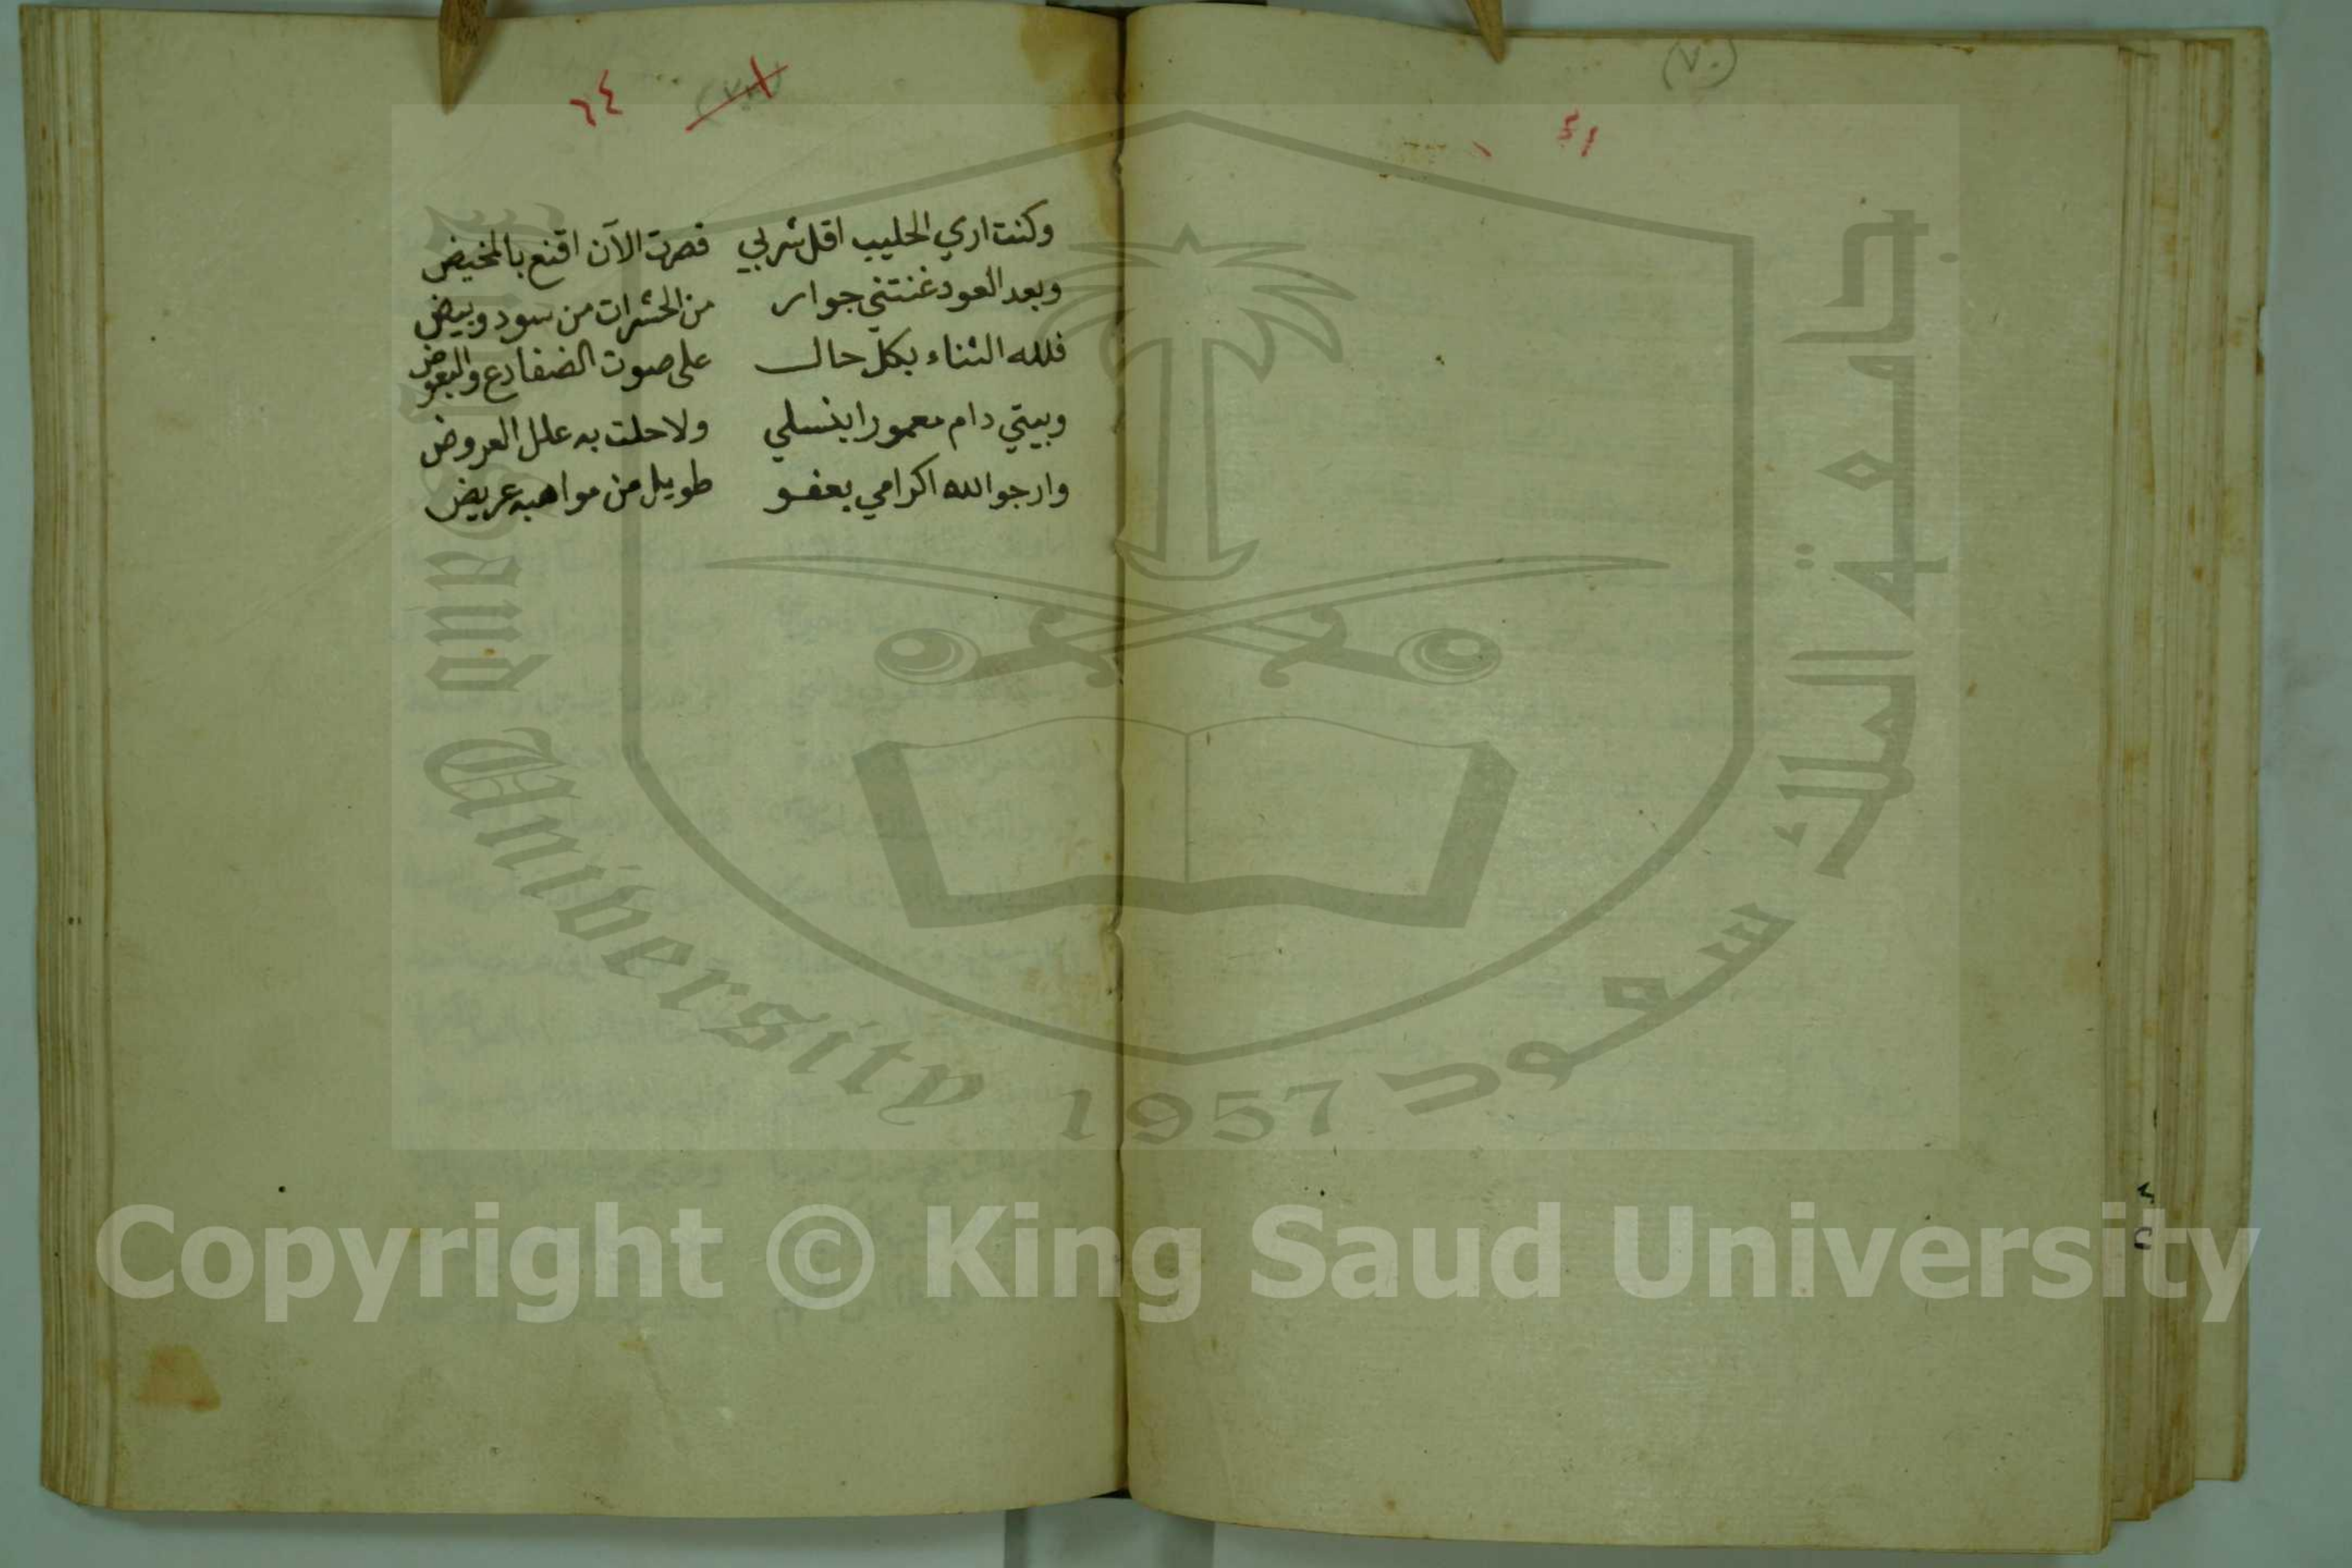 (٧٠)
٦٤
وكنت اري الحليب اقل شربي فصرت الآن اقنع بالمخيض
وبعد العود غنتني جوار من الحشرات من سود وبيض
فلله الثناء بكل حال على صوت الضفادع والبعوض
وبيتي دام معمورا بنسلي ولا حلت به علل العروض
وارجو الله اكرامي بعفو طويل من مواهبه عريض
جامعة الملك سعود
University 1957
Copyright © King Saud University